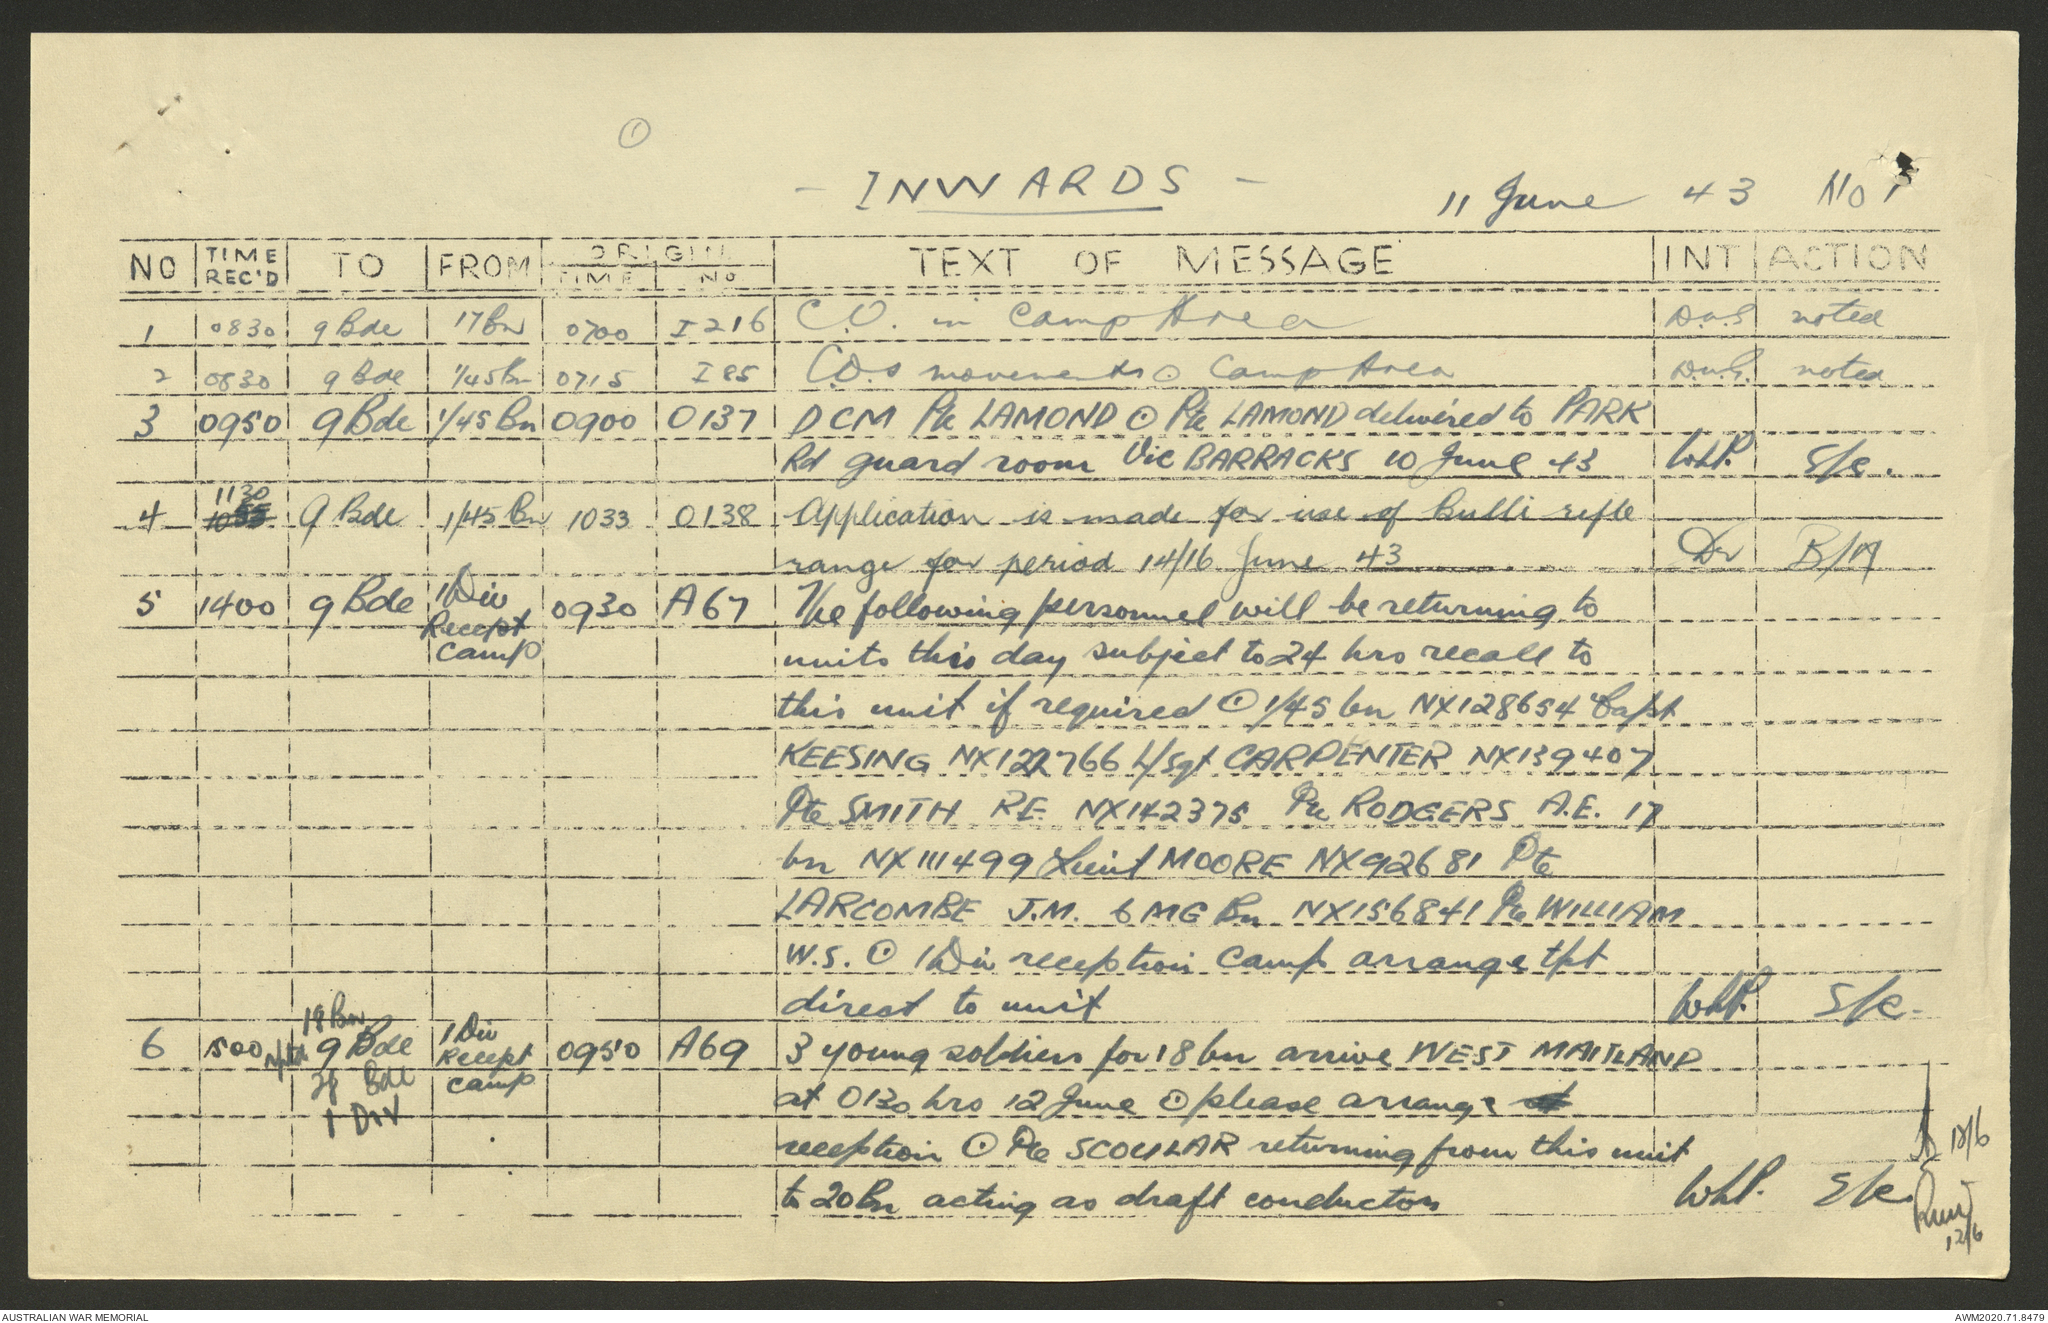 ①
- INWARDS -
11 June 43 No 1
NO TIME REC'D TO FROM ORIGIN TIME No TEXT OF MESSAGE INT ACTION
1 0830 9 Bde 17 Bn 0700 I 216 C.O. in Camp Area noted
2 0830 9 Bde 1/45 Bn 0715 I 85 C.O.s movements ⊙ Camp Area noted
3 0950 9 Bde 1/45 Bn 0900 O137 DCM Pte LAMOND ⊙ Pte LAMOND delivered to PARK
Rd guard room Vic BARRACKS 10 June 43 WhP. S/c.
1130
4 1055 9 Bde 1/45 Bn 1033 O138 Application is made for use of Bulli rifle
range for period 14/16 June 43 B/M
5 1400 9 Bde 1 Div Recept Camp 0930 A67 The following personnel will be returning to
units this day subject to 24 hrs recall to
this unit if required ⊙ 1/45 bn NX128654 Capt
KEESING NX122766 L/Sgt CARPENTER NX139407
Pte SMITH R.E. NX142375 Pte RODGERS A.E. 17
bn NX111499 Lieut MOORE NX92681 Pte
LARCOMBE J.M. 6 MG Bn NX156841 Pte WILLIAM
W.S. ⊙ 1 Div reception Camp arrange tpt
direct to unit WhP. S/c.
18 Bn
6 1500 9 Bde 1 Div Recept Camp 0950 A69 3 young soldiers for 18 bn arrive WEST MAITLAND
Bde
1 DIV
at 0130 hrs 12 June ⊙ please arrange
reception ⊙ Pte SCOULAR returning from this unit
to 20 Bn acting as draft conductor WhP. S/c.
12/6
12/6
AUSTRALIAN WAR MEMORIAL
AWM2020.71.8479